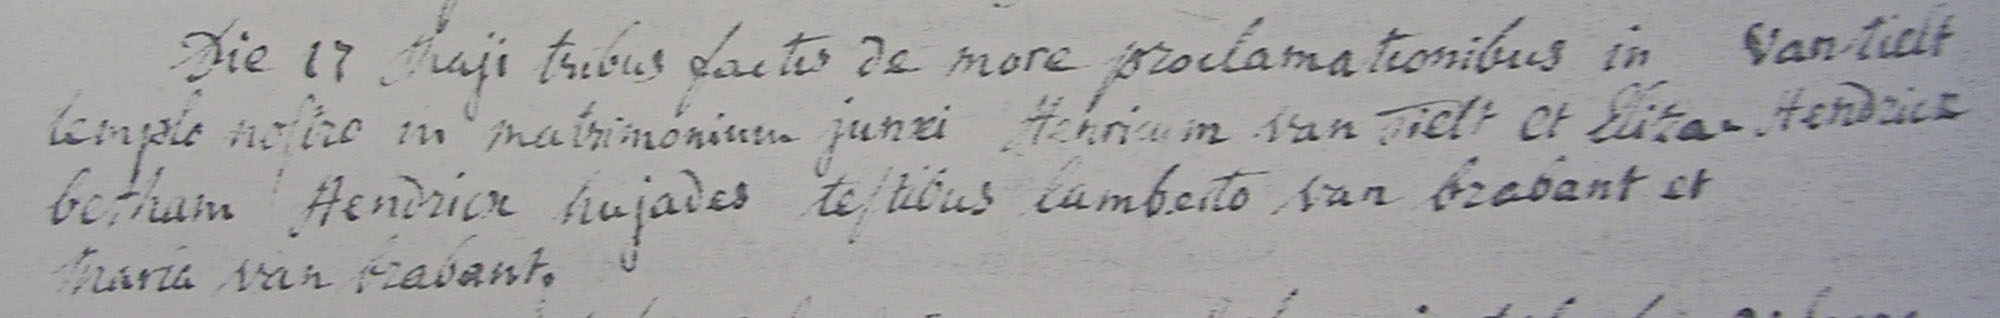 Die 17 Maji tribus factis de more proclamationibus in
templo nostro in matrimonium junxi Henricum van Tielt et Eliza-
betham Hendricx hujades testibus lamberto van brabant et
Maria van brabant.
van tielt
Hendricx